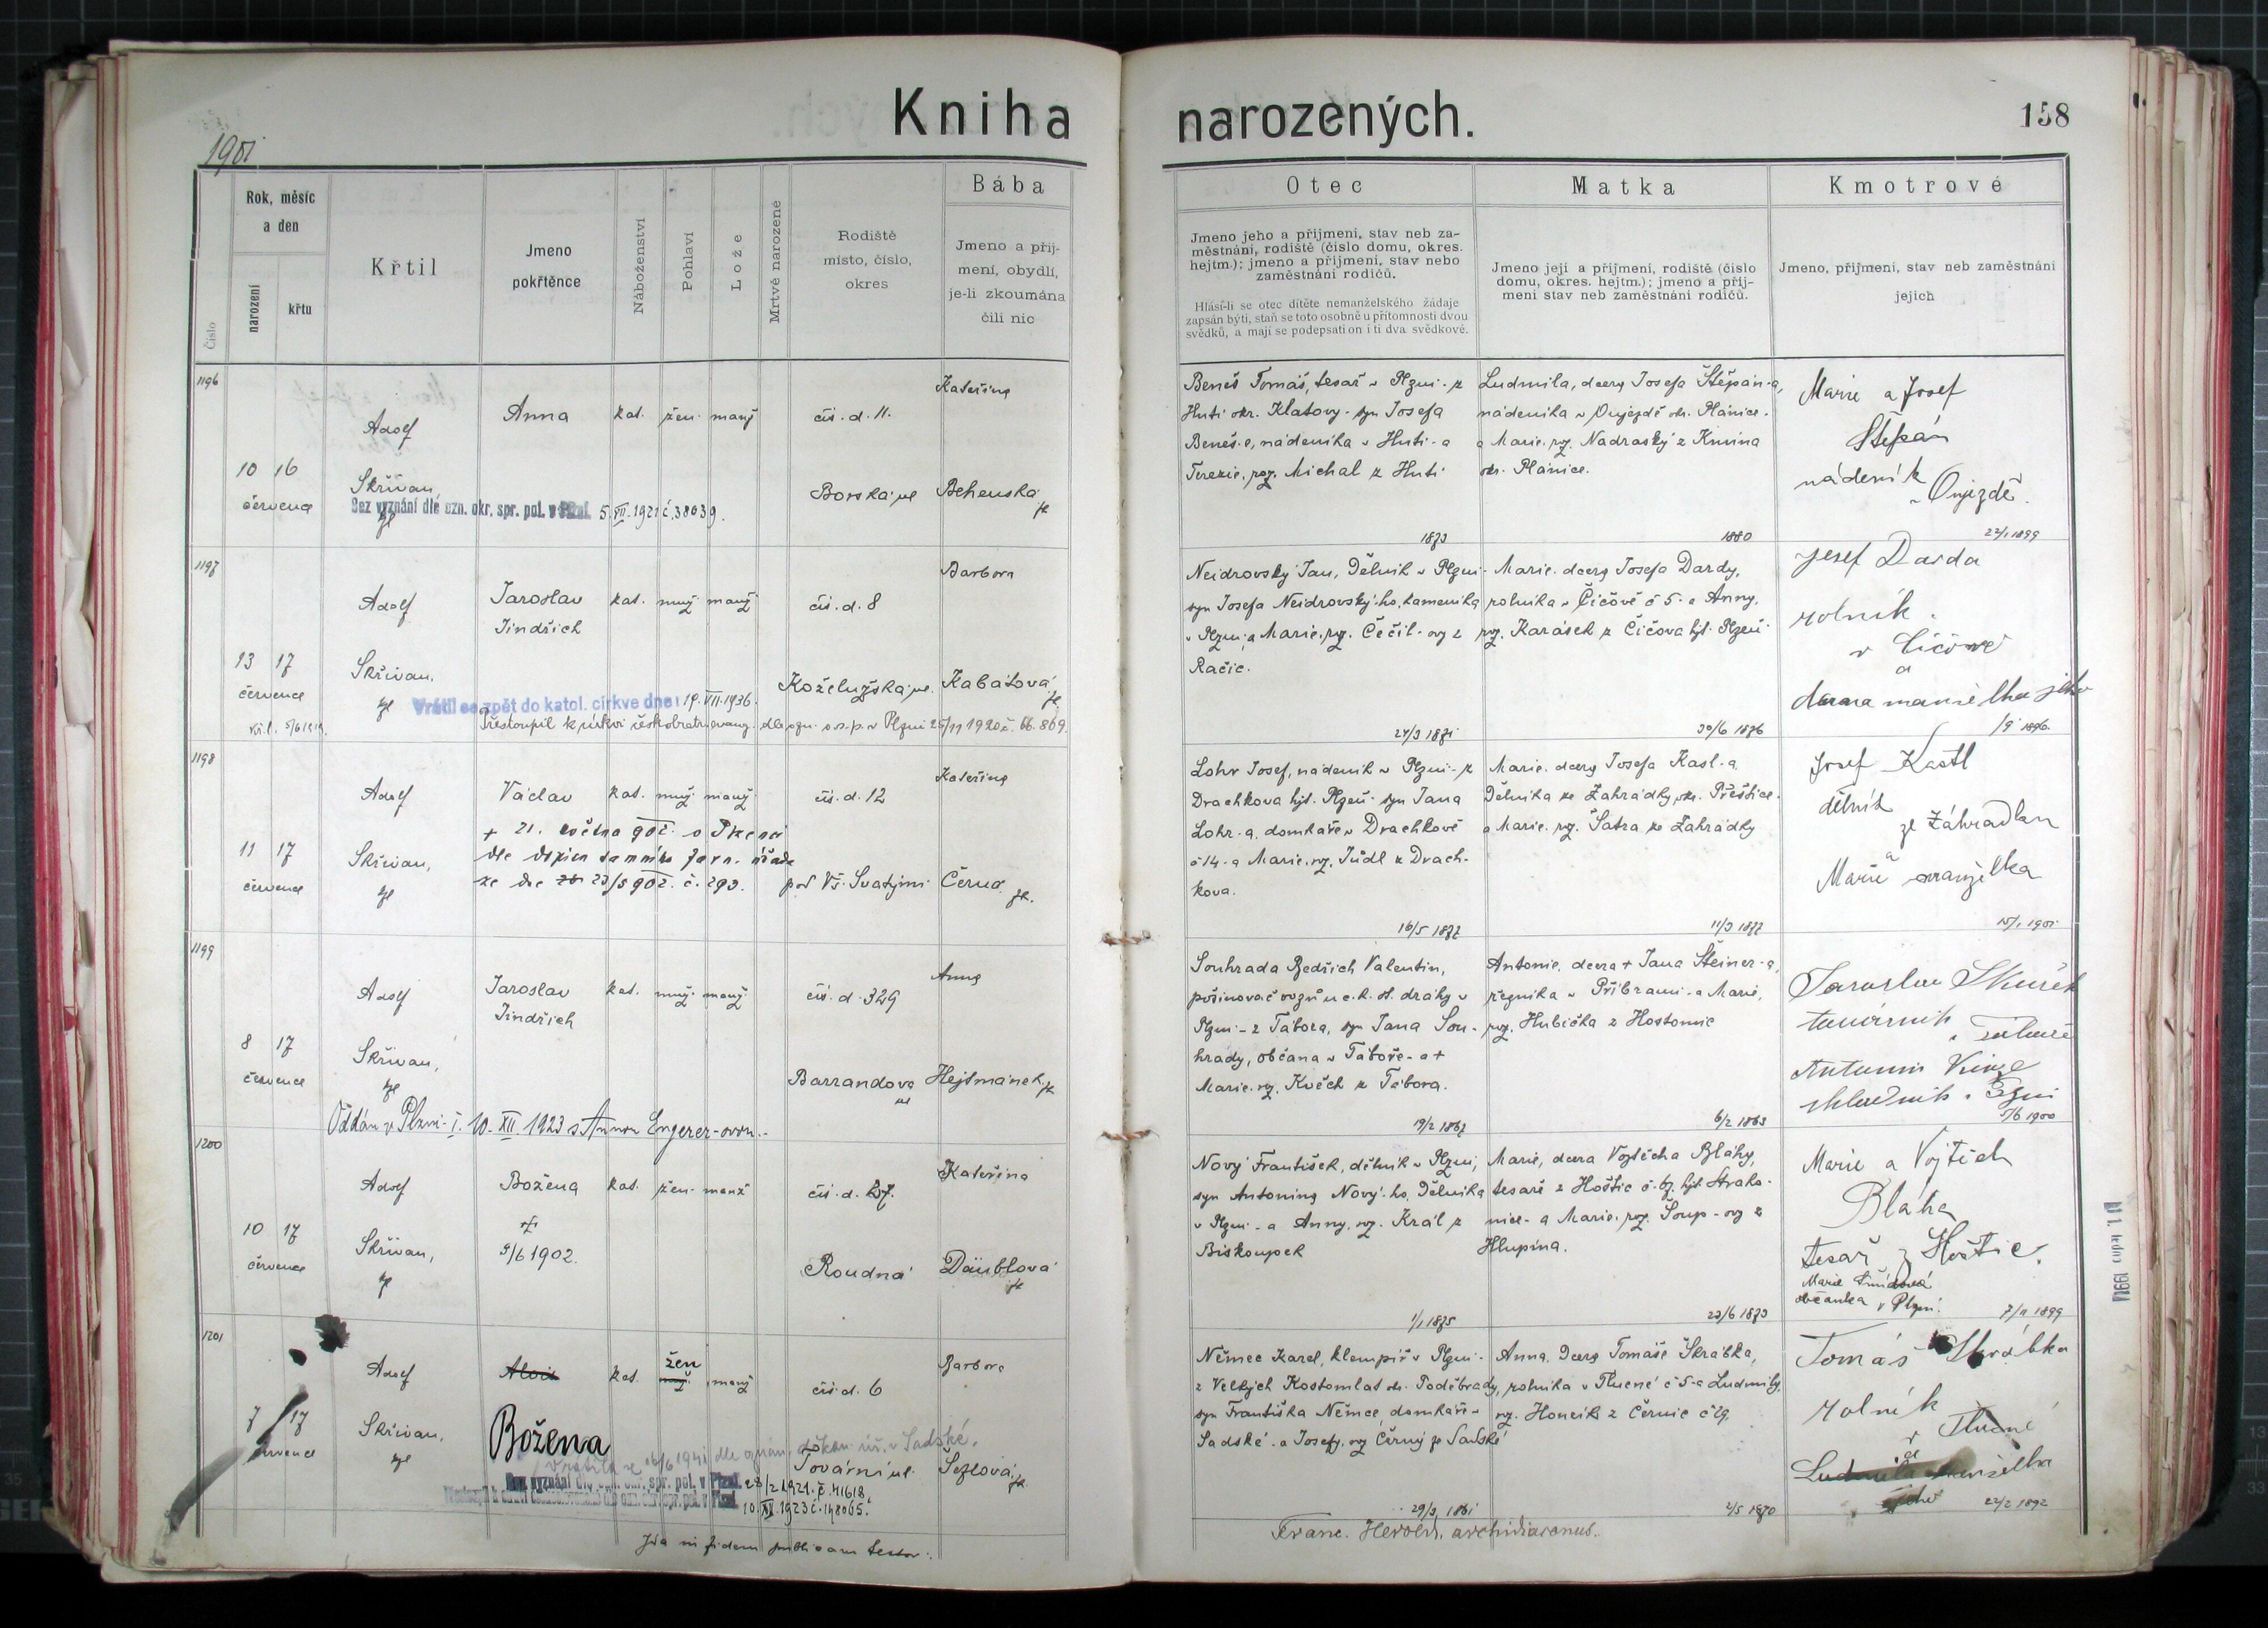 Kniha narozených.
158
1901
Číslo
Rok, měsíc
a den
narození
křtu
Křtil
Jmeno
pokřtěnce
Náboženství
Pohlaví
Lože
Mrtvě narozené
Rodiště
místo, číslo,
okres
Bába
Jmeno a přij-
mení, obydlí,
je-li zkoumána
čili nic
Otec
Jmeno jeho a přijmení, stav neb za-
městnání, rodiště (číslo domu, okres.
hejtm.); jmeno a přijmení, stav nebo
zaměstnání rodičů.
Hlásí-li se otec dítěte nemanželského žádaje
zapsán býti, staň se toto osobně u přítomnosti dvou
svědků, a mají se podepsati on i ti dva svědkové.
Matka
Jmeno její a přijmení, rodiště (číslo
domu, okres. hejtm.); jmeno a přij-
mení stav neb zaměstnání rodičů.
Kmotrové
Jmeno, přijmení, stav neb zaměstnání
jejich
1196
10 16
července
Adolf
Skřivan,
Anna
kat. žen. manž
čís. d. 11.
Borská ul
Kateřina
Behenská
Bez vyznání dle ozn. okr. spr. pol. v Plzni. 5. VII. 1921 č. 38039.
Beneš Tomáš, tesař v Plzni - z
Huti okr. Klatovy - syn Josefa
Beneš-e, nádeníka v Huti - a
Terezie, roz. Michal z Huti
1873
Ludmila, dcera Josefa Štěpán-a,
nádeníka v Onjezdě okr. Plánice.
a Marie, roz. Nadraský z Kmina
okr. Plánice.
1880
Marie a Josef
Štěpán
nádeník
v Onjezdě.
22/1 1899
1197
13 17
července
Adolf
Skřivan,
Jaroslav
Jindřich
kat. muž. manž
čís. d. 8
Koželužská ul.
Barbora
Kabátová
Vrátil se zpět do katol. církve dne 19. VII. 1936.
Přestoupil k církvi českobratr. evang. dle ozn. o. s. p. v Plzni 25/11 1920 č. 66.869.
Neidrovský Jan, dělník v Plzni -
syn Josefa Neidrovský-ho, kameníka
v Plzni, a Marie, roz. Čečil-ovy z
Račic.
24/3 1871
Marie, dcera Josefa Dardy,
rolníka v Čičově č 5 - a Anny,
roz. Karásek z Čičova hjt. Plzeň
30/6 1876
Josef Darda
rolník
v Čičově
a
manželka jeho
1896.
1198
11 17
července
Adolf
Skřivan,
Václav
kat. muž. manž.
čís. d. 12
pod Vš. Svatými
Kateřina
Černá
+ 21. května 902
dle
ze dne 23/5 902. č. 293.
Lohr Josef, nádeník v Plzni - z
Drachkova hjt. Plzeň - syn Jana
Lohr-a, domkáře v Drachkově
č 14 - a Marie, roz. Jůdl z Drach-
kova.
16/5 1877
Marie, dcera Josefa Kasl-a
dělníka ze Zahrádky, okr. Přeštice.
a Marie, roz. Šatra ze Zahrádky
11/3 1877
Josef Kastl
dělník
ze Záhradky
a
Marie manželka
15/1 1901
1199
8 17
července
Adolf
Skřivan,
Jaroslav
Jindřich
kat. muž. manž.
čís. d. 329
Barrandova
ul
Anna
Hejtmánek
Oddán v Plzni - I. 10. XII. 1923 s Annou Engerer-ovou.
Souhrada Bedřich Valentin,
pošinovač vozů u c. k. st. dráhy v
Plzni - z Tábora, syn Jana Sou-
hrady, občana v Táboře - a +
Marie, roz. Kvěch z Tábora.
19/2 1867
Antonie, dcera + Jana Šteiner-a,
řezníka v Příbrami - a Marie,
roz. Hubička z Hostomic
6/2 1863
Jaroslav
Antonín
5/6 1900
1200
10 17
července
Adolf
Skřivan,
Božena
+
9/6 1902.
kat. žen. manž
čís. d. 27.
Roudná
Kateřina
Däublová
Nový František, dělník v Plzni,
syn Antonína Nový-ho, dělníka
v Plzni - a Anny, roz. Král z
Biskoupek
1/1 1875
Marie, dcera Vojtěcha Bláhy,
tesaře z Hoštic č. 67. hjt. Strako-
nice - a Marie, roz. Šoup-ovy z
Hlupína.
23/6 1873
Marie a Vojtěch
Bláha
tesař z Hoštic.
Marie
občanka v Plzni.
7/11 1899
1201
7 17
července
Adolf
Skřivan,
Alois
Božena
kat. muž. žen manž
čís. d. 6
Tovární ul.
Barbora
Šezlová
Vrátila se 16/6 1941 dle oznám. děkan. úř. v Sadské.
Bez vyznání dle ozn. okr. spr. pol. v Plzni. 28/2 1921. č. 41618
10. XI. 1923 č. 148065.
Němec Karel, klempíř v Plzni -
z Velkých Kostomlat okr. Poděbrady,
syn Františka Němce, domkáře v
Sadské - a Josefy, roz Černý ze Sadské
29/3 1861
Anna, dcera Tomáše Škrabka,
rolníka v Tlucné č 5 - a Ludmily,
roz. Honcík z Černic č 19.
2/5 1870
Tomáš Škrábka
rolník
v Tlucné
a
Ludmila manželka
jeho
22/2 1892
Ita in fidem publicam testor:
Franc. Herold, archidiaconus.